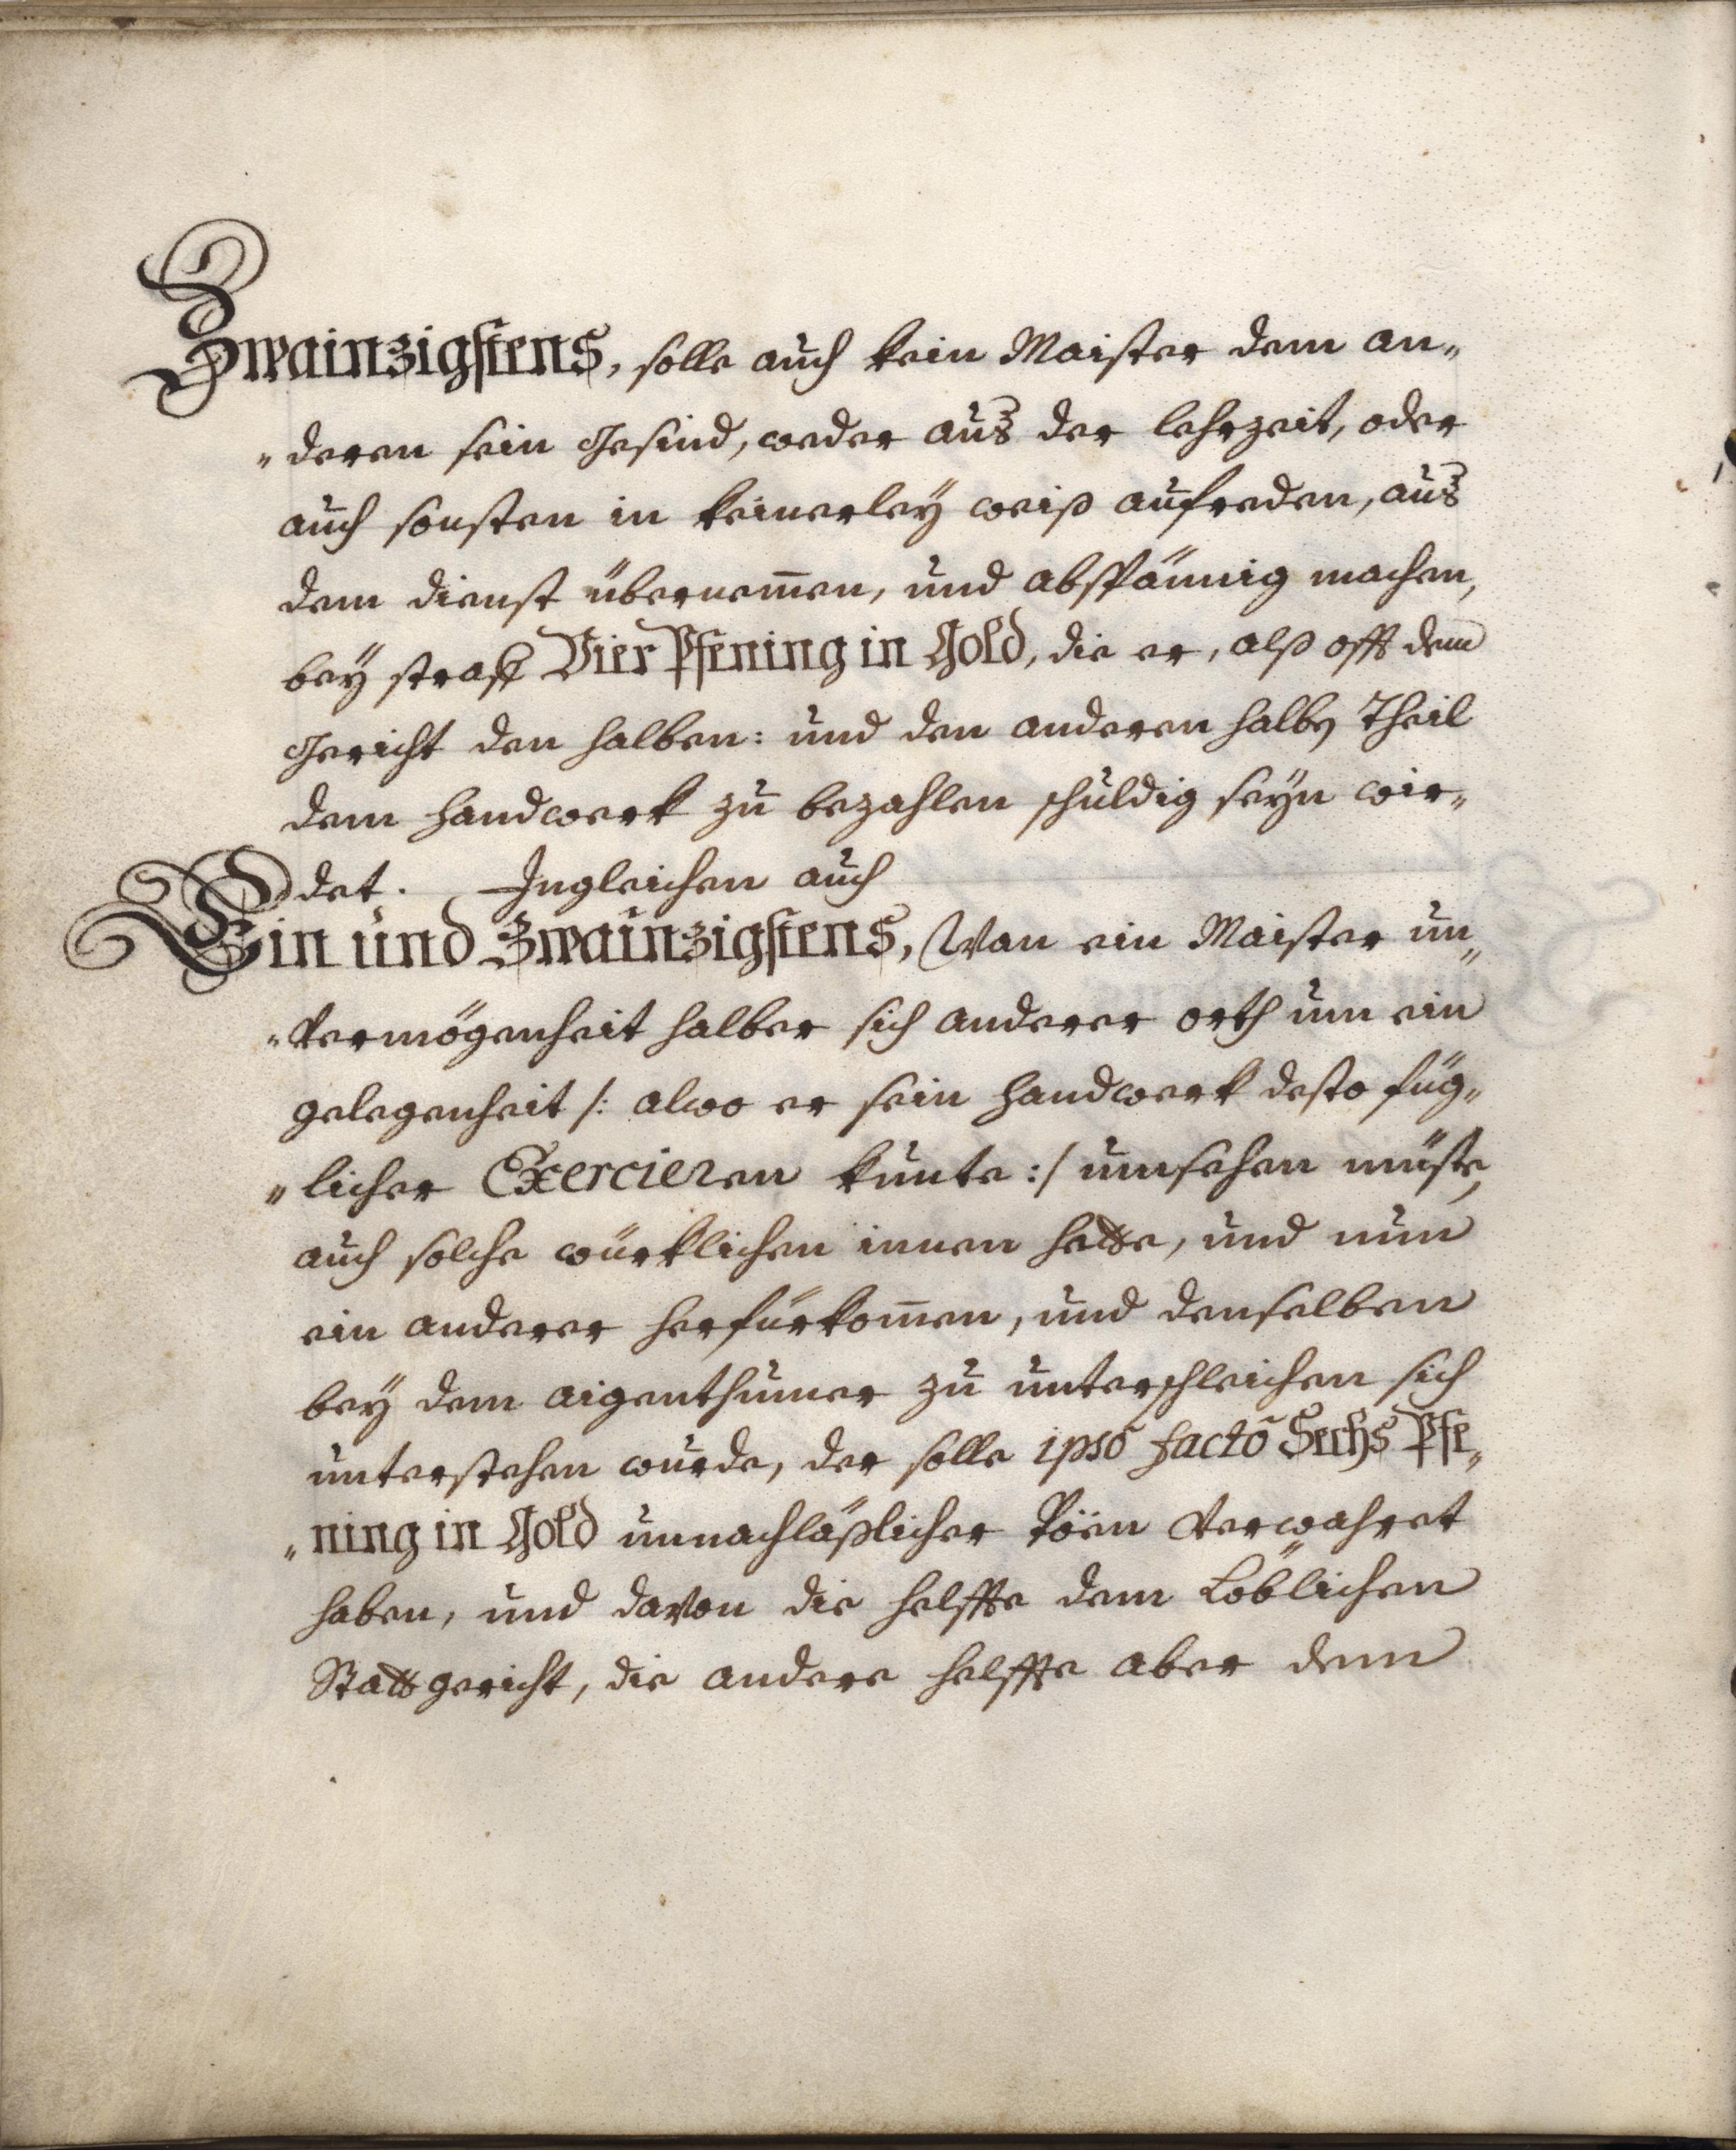 Zwainzigstens, solle auch kein Maister dem an„
„deren sein gesind, weder aus der lehrzeit, oder
auch sonsten in keinerleÿ weiß aufreden, aus
dem dienst übernem̄en, und abspännig machen,
beÿ straff Vier Pfening in Gold, die er, alß offt dem
gericht den halben: und den anderen halben Theil
dem handwerk zu bezahlen schuldig seÿn wir„
det. Ingleichen auch
Ein und Zwainzigstens, Wan ein Maister un„
„vermögenheit halber sich anderer orth um ein
gelegenheit /: alwo er sein handwerk desto füg„
„licher Exercieren kunte :/ umsehen müste,
auch solche würklichen innen hette, und nun
ein anderer herfürkom̄en, und denselben
beÿ dem aigenthumer zu unterschleichen sich
unterstehen wurde, der solle ipsō factō Sechs Pfe„
„ning in Gold unnachläßlicher Pöen verwahret
haben, und davon die helffte dem Löblichen
Stattgericht, die andere helffte aber dem